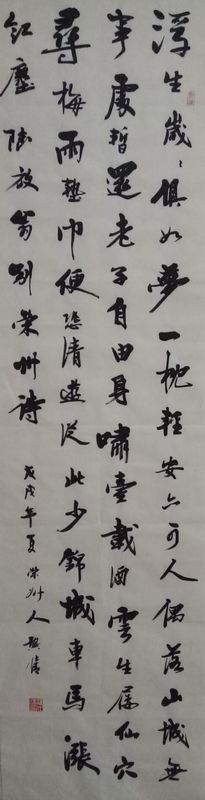 浮生歲々俱如夢一枕輕安亦可人偶落山城無
事處暫還老子自由身嘯臺載酒雲生屨仙穴
尋梅雨墊巾便恐清遊從此少錦城車馬漲
紅塵陸放翁別榮州詩
戊戌年夏榮州人